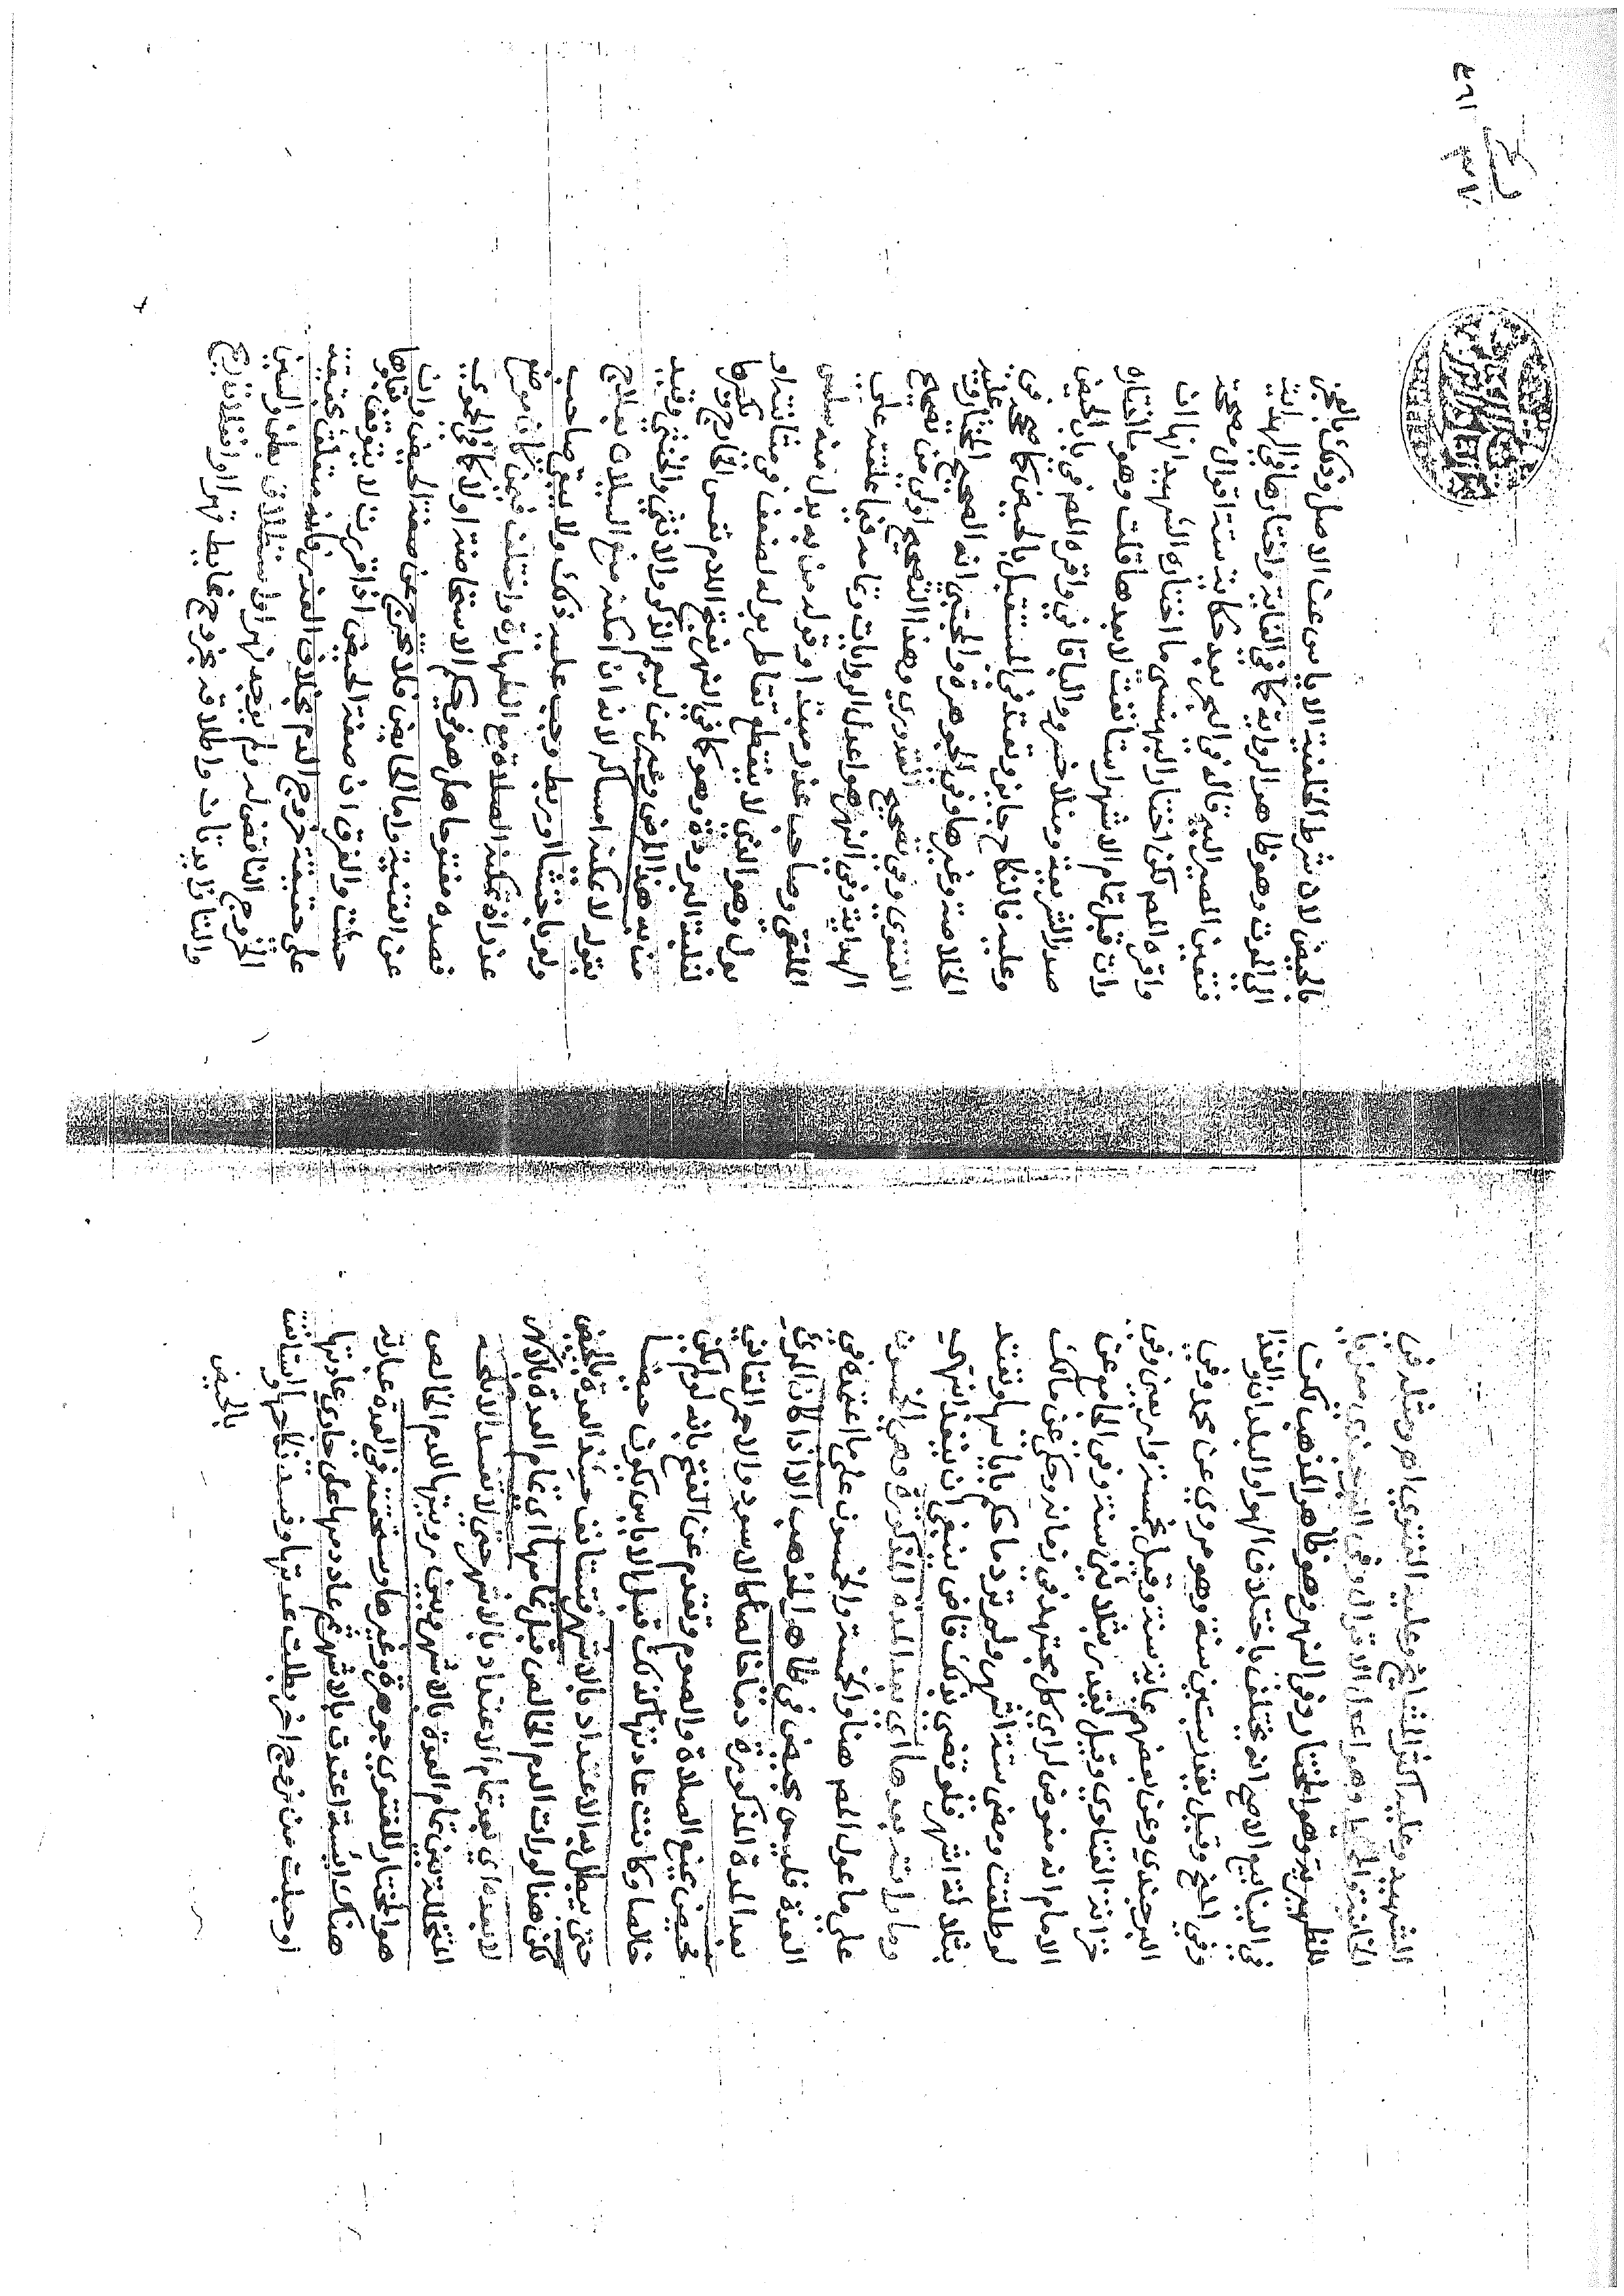 الشهيد وعليه اكثر المشايخ وعليه الفتوي اهـ ومثله في
الخانية والمحيط وهو اعدل الاقوال وفي البرجندي معزيا
للظهيرية وهو المختار وفي النهر وهو ظاهر المذهب لكن
في الينابيع الاصح انه يختلف باختلاف الهوا والبلدان والغذا
وفي المنح وقيل يقدر بستين سنة وهو مروي عن محمد وفي
البرجندي وعن بعضهم سنة وقيل بخمسة واربعين وفي
خزانة الفتاوي وقيل يقدر بثلاثين سنة وفي الجامع عن
الامام انه مفوض لراي كل مجتهد في زمانه وحكي عن مالك
لو طلقت ومضى ستة اشهر ولم تر دما حكم باياسها وتعتد
بثلاثة اشهر فلو قضى بذلك قاض ينبغي ان ينفذ انتهى
وما راته بعدها اي بعد المدة المذكورة وهي الخمسون
على ما عول المص هنا والخمسة والخمسون على ما اعتمده في
العدة فليس بحيض في ظاهر المذهب الا اذا كان المرئي
بعد المدة المذكورة دما خالصا كالاسود والاحمر القاني
فحيض يمنع الصلاة والصوم وتقدم عن الفتح بانه لو لم يكن
خالصا وكانت عادتها كذلك قبل الاياس يكون حيضا
حتى يبطل به الاعتداد بالاشهر فتستانف حينئذ العدة بالحيض
لكن هنا لو رات الدم الخالص قبل تمامها اي تمام العدة بالاشهر
لا بعده اي بعد تمام الاعتداد بالاشهر حتى لا تفسد الانكحة
المتخللة بين تمام العدة بالاشهر وبين رويتها للدم الخالص
هو المختار للفتوي جوهرة وغيرها وسنحققه في العدة عبارته
هناك ايسة اعتدت بالاشهر ثم عاد دمها على جاري عادتها
او حبلت من زوج اخر بطلت عدتها وفسد نكاحها واستانفت
بالحيض
بالحيض لان شرط الخلفية الاياس عن الاصل وذلك بالعجز
الى الموت وهو ظاهر الرواية كما في الغاية واختارها في الهداية
فتعين المصير اليه قاله في البحر بعد حكاية ستة اقوال مصححة
واقره المص لكن اختار البهنسي ما اختاره الشهيد انها ان
راته قبل تمام الاشهر استانفت لا بعدها قلت وهو ما اختاره
صدر الشريعة ومنلا خسرو والباقاني واقره المص في باب الحيض
وعليه فالنكاح جايز وتعتد في المستقبل بالحيض كما صححه في
الخلاصة وغيرها وفي الجوهرة والمجتبى انه الصحيح المختار وعليه
الفتوى وفي تصحيح القدوري وهذا التصحيح اولى من تصحيح
الهداية وفي النهر هو اعدل الروايات وتمامه فيما علقته على
الملتقى وصاحب عذر مبتدا وقوله من به بدل منه سلس
بول وهو الذي لا ينقطع تقاطر بوله لضعف في مثانته او
لغلبة البرودة وهو كما في النهر بفتح اللام نفس الخارج وبكسرها
من به هذا المرض وغير عن ليعم الذكر والانثى والخنثى وقيد
بقوله لا يمكنه امساكه لانه ان امكنه منع السيلان بعلاج
ولو باحتشا او ربط وجب عليه ذلك ولا يبقى صاحب
عذر اذ تمكنه الصلاة مع الطهارة واختلف فيمن كان موضع
فصده مفتوحا هل هو في حكم الاستحاضة او لا كما في الحموي
عن القنية واما الحايض فلا تخرج عن صفة الحيض وان
حشت والفرق ان صفة الحيض اذا قررت لا يتوقف بقاوها
على حقيقة خروج الدم بخلاف العذر فانه متعلق بحقيقة
الخروج الناقض له فلم يوجد نهر او استطلاق بطن والسين
والتا زايدتان واطلاقه بخروج غايط قهرا او انفلات ريح